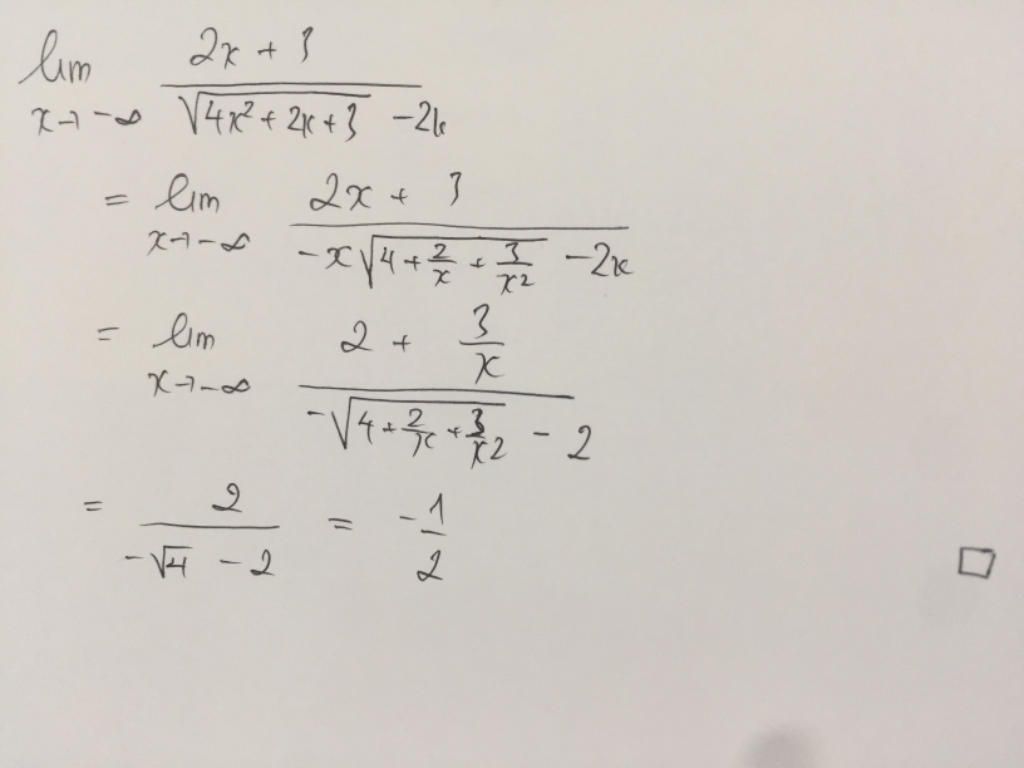 lim x→-∞ (2x + 3)/(√(4x² + 2x + 3) - 2x)
= lim x→-∞ (2x + 3)/(-x√(4 + 2/x + 3/x²) - 2x)
= lim x→-∞ (2 + 3/x)/(-√(4 + 2/x + 3/x²) - 2)
= 2/(-√4 - 2) = -1/2 □